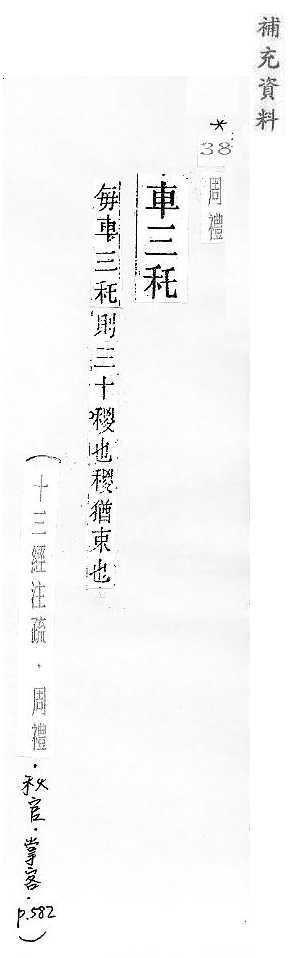 補充資料
*
38
周禮
車三秅
每車三秅則三十稯也稯猶束也
(十三經注疏．周禮．秋官．掌客．p.582)